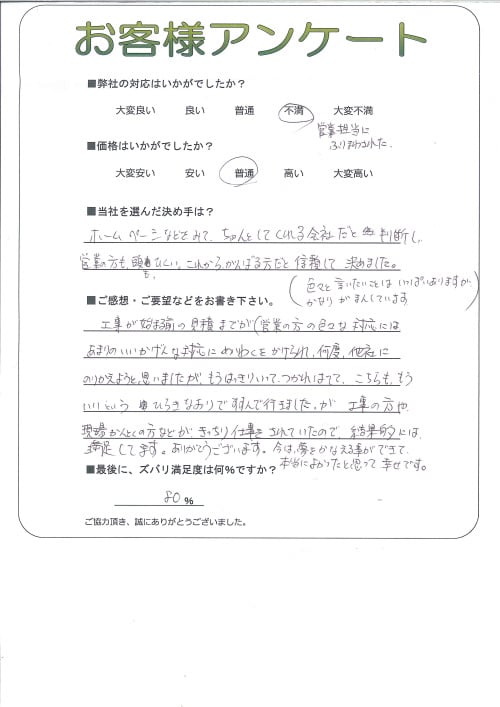 お客様アンケート
■弊社の対応はいかがでしたか？
大変良い 良い 普通 不満 大変不満
営業担当に
ふりまわされた.
■価格はいかがでしたか？
大変安い 安い 普通 高い 大変高い
■当社を選んだ決め手は？
ホームページなどをみて、ちゃんとしてくれる会社だと 判断し、
営業の方も、頭もひくい、これからがんばる方だと信頼して 決めました。
（色々と言いたいことは いっぱいありますが、
かなり がまんしています）
■ご感想・ご要望などをお書き下さい。
工事が始まる前の見積までが（営業の方の色々な対応には
あまりのいいかげんな対応にめいわくをかけられ、何度、他社に
のりかえようと思いましたが、もうはっきりいって、つかれはてて、こちらも、もう
いいという ひらきなおりで進んで行きました。が 工事の方や
現場かんとくの方などが きっちり仕事をされていたので、結果的には、
満足してます。ありがとうございます。今は、夢をかなえる事ができて、
本当によかったと思って 幸せです。
■最後に、ズバリ満足度は何％ですか？
80 ％
ご協力頂き、誠にありがとうございました。